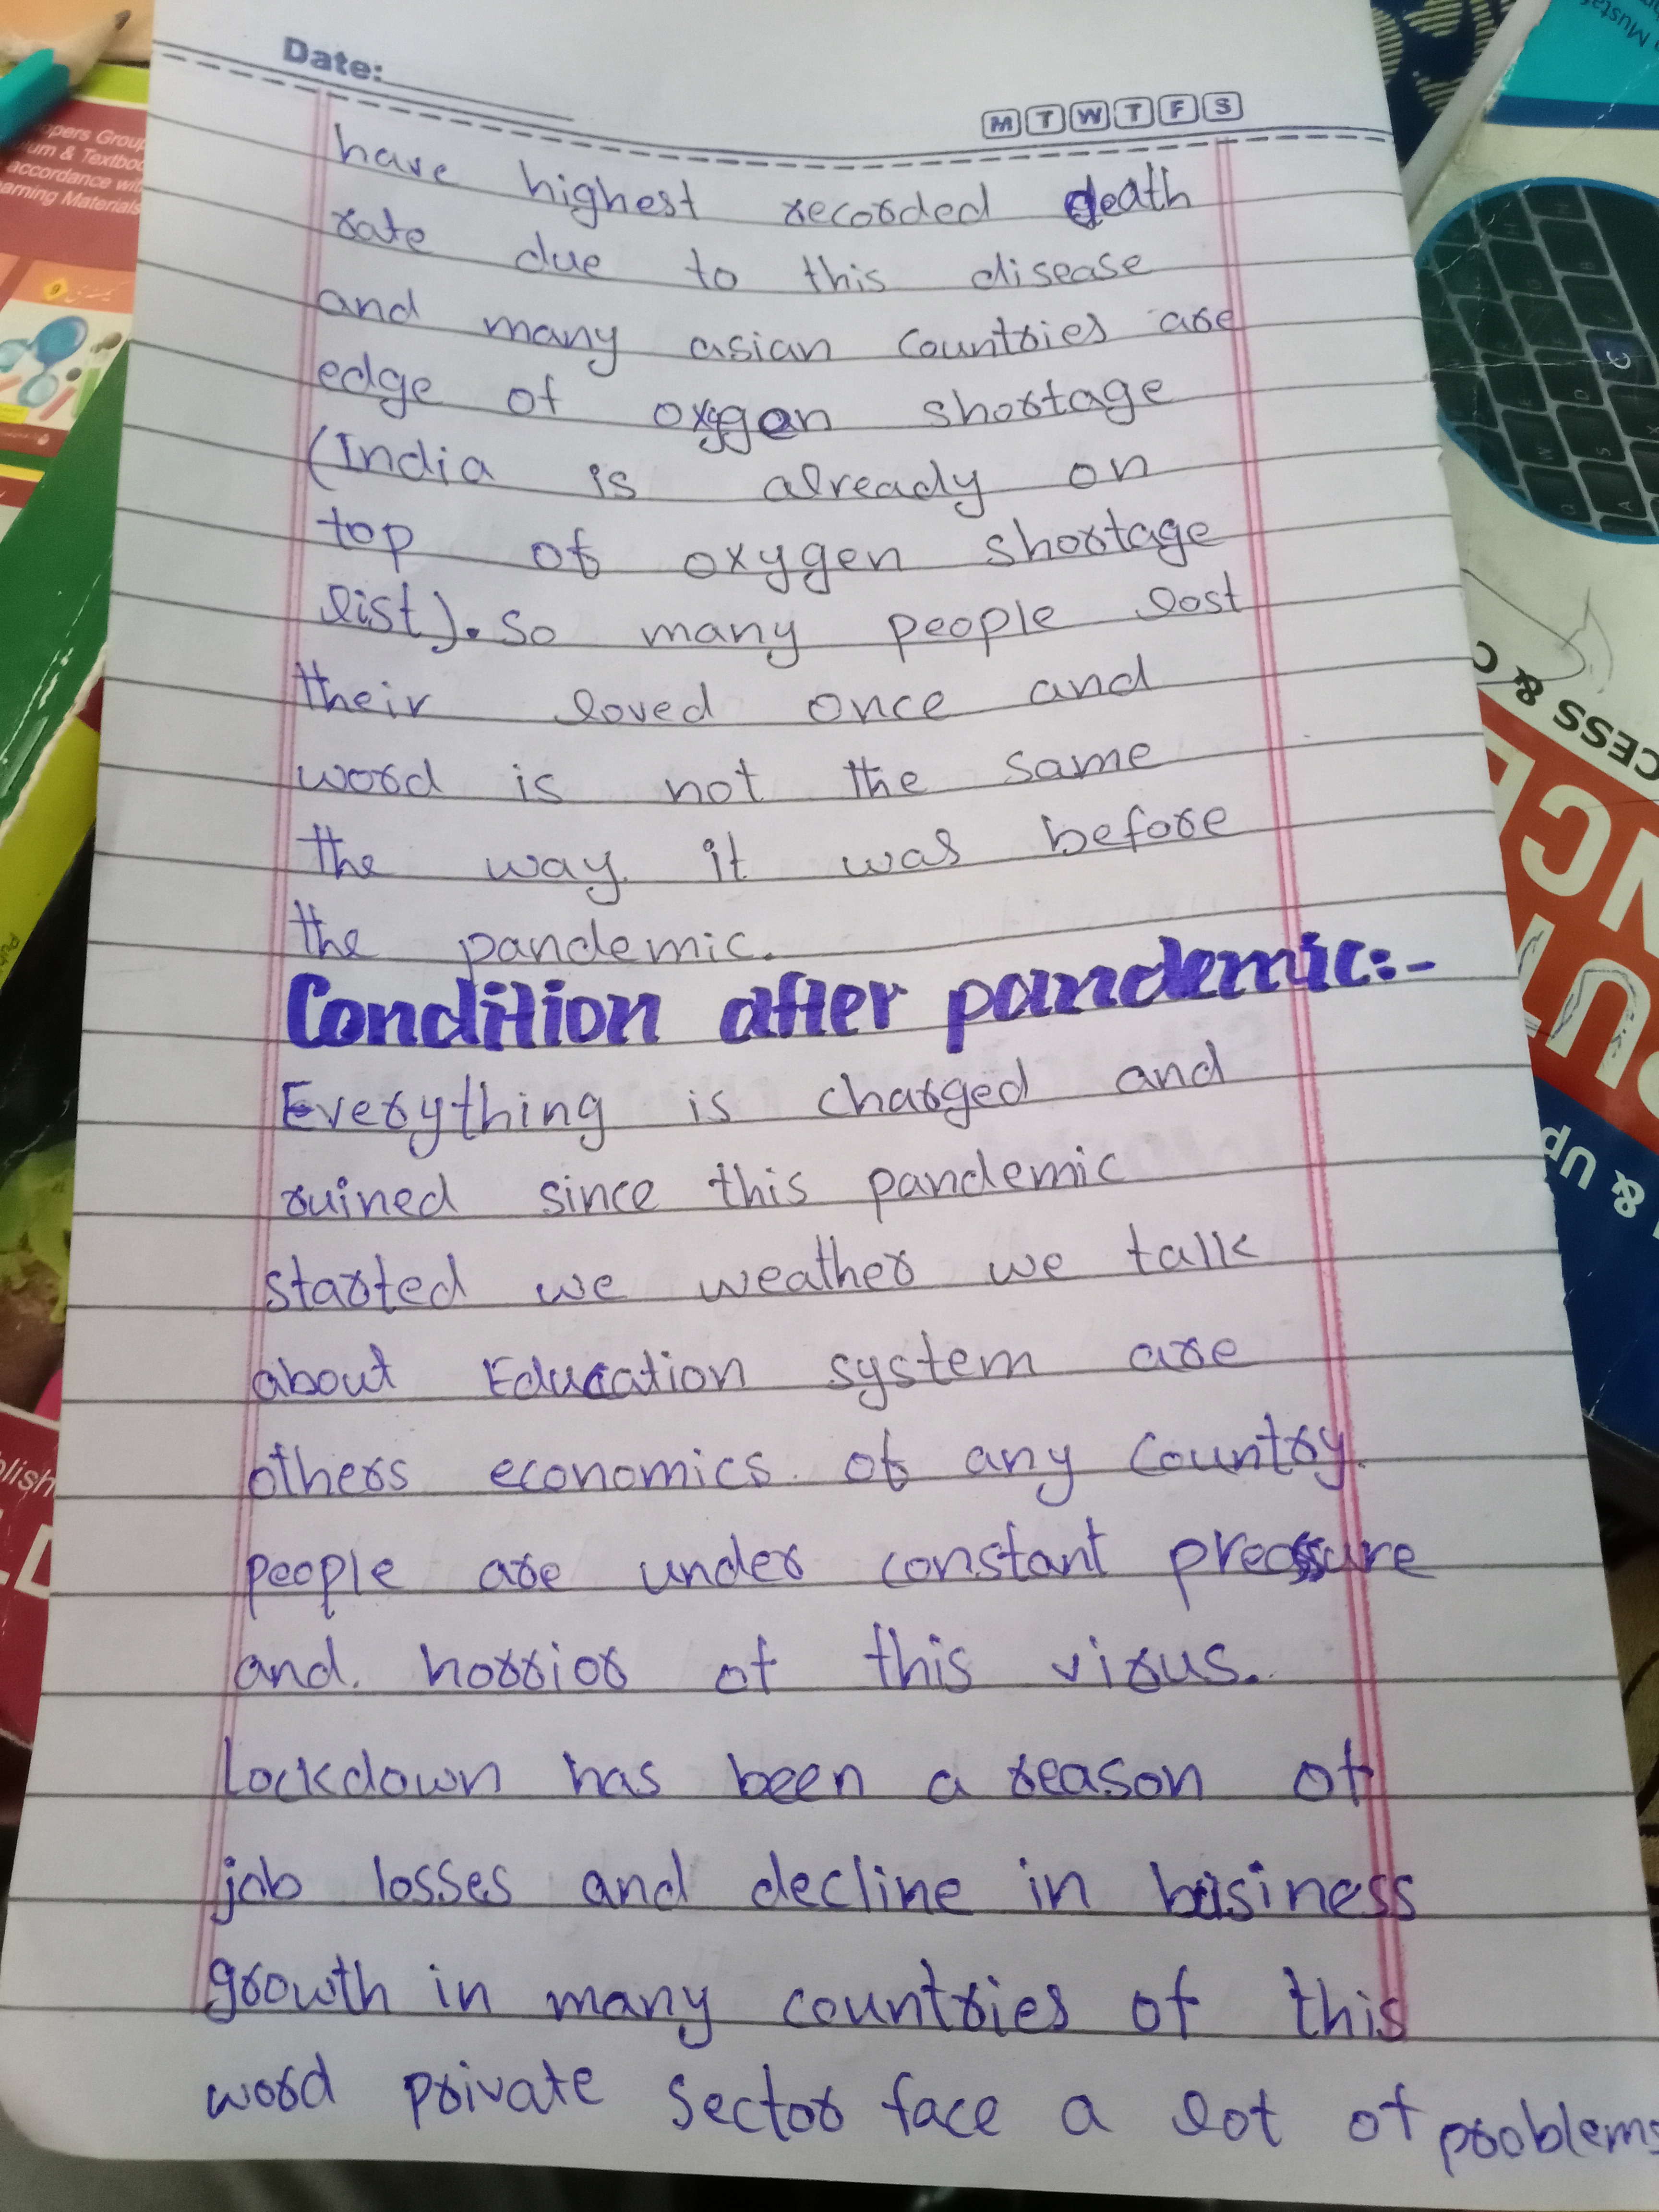 Date:
M T W T F S
have highest recorded death
rate due to this disease
and many asian countries are
edge of oxygen shortage
(India is already on
top of oxygen shortage
list). so many people lost
their loved once and
word is not the same
the way it was before
the pandemic.
Condition after pandemic:-
Everything is charged and
ruined since this pandemic
started we weather we talk
about Education system are
others economics of any country.
people are under constant pressure
and. horrior of this virus.
Lockdown has been a reason of
job losses and decline in business
growth in many countries of this
word private sector face a lot of problems
opers Group
um & Textboo
accordance wit
arning Materials
CESS & C
& UP